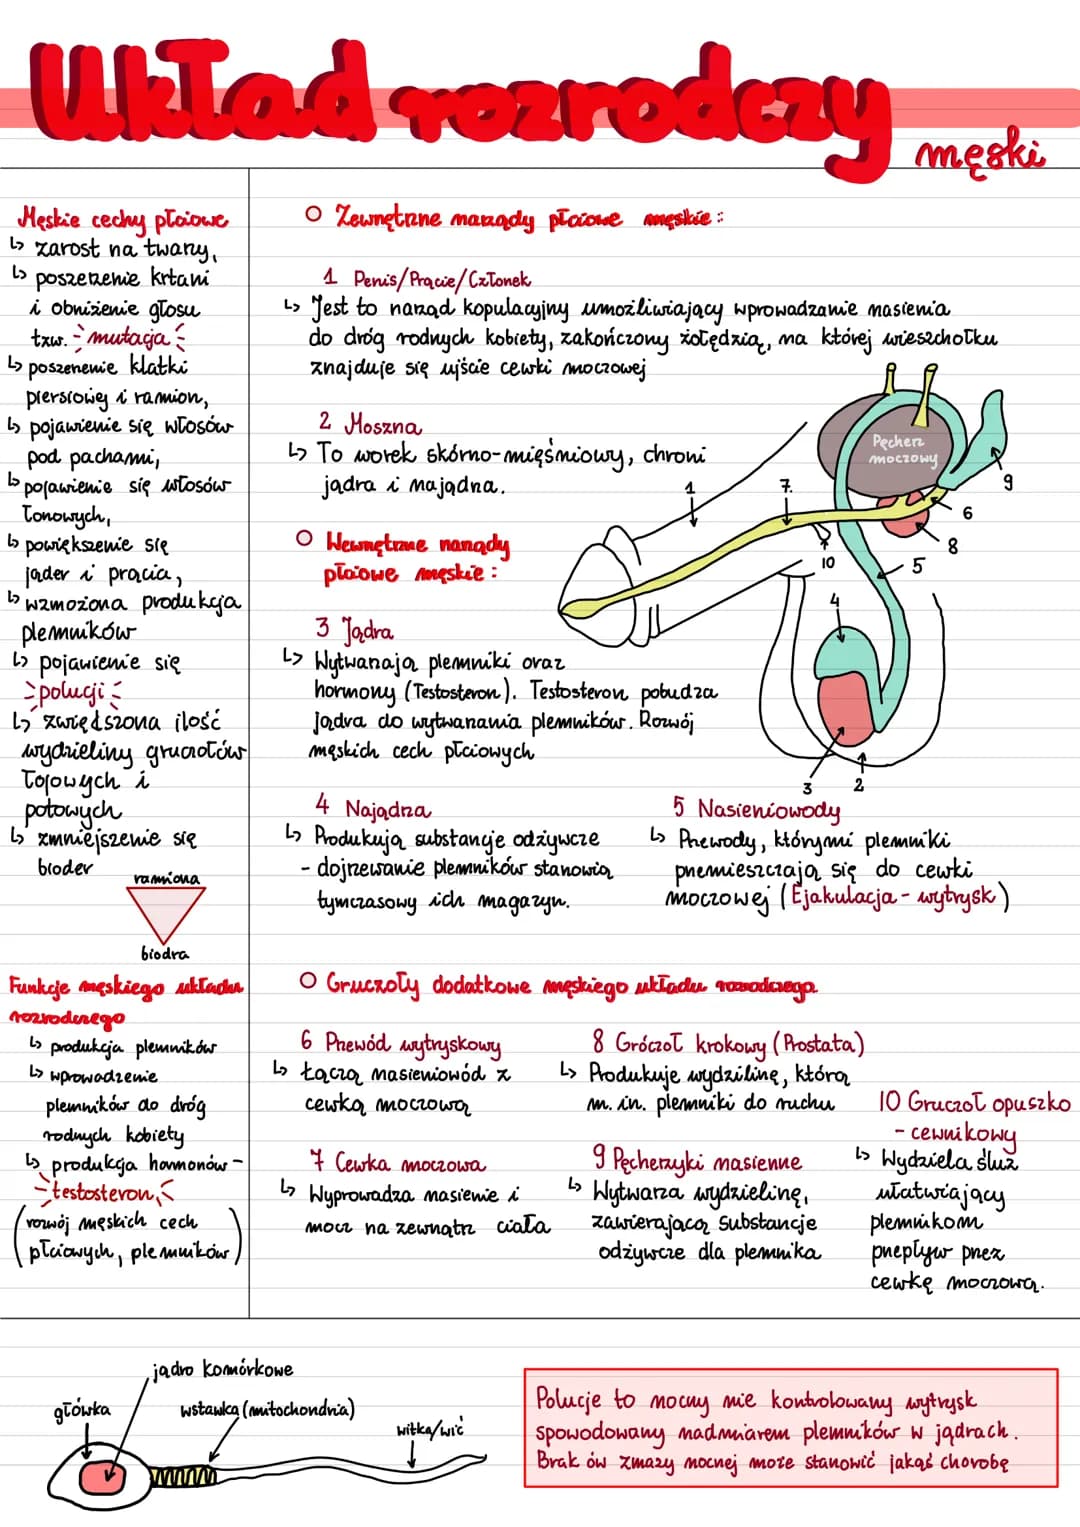 Układ rozrodczy
męski
Męskie cechy płciowe
↳ zarost na twarzy,
↳ poszerzenie krtani
i obniżenie głosu
tzw. mutacja
↳ poszerzenie klatki
piersiowej i ramion,
↳ pojawienie się włosów
pod pachami,
↳ pojawienie się włosów
łonowych,
↳ powiększenie się
jąder i prącia,
↳ wzmożona produkcja
plemników
↳ pojawienie się
polucji
↳ zwiędszona ilość
wydzieliny gruczołów
łojowych i
potowych
↳ zmniejszenie się
bioder
ramiona
biodra
Funkcje męskiego układu
rozrodczego
↳ produkcja plemników
↳ wprowadzenie
plemników do dróg
rodnych kobiety
↳ produkcja hormonów -
testosteron,
(rozwój męskich cech
płciowych, plemników)
○ Zewnętrzne narządy płciowe męskie:
1 Penis/Prącie/Członek
↳ Jest to narząd kopulacyjny umożliwiający wprowadzanie nasienia
do dróg rodnych kobiety, zakończony żołędzią, na której wieszchołku
znajduje się ujście cewki moczowej
2 Moszna
↳ To worek skórno-mięśniowy, chroni
jądra i najądrza.
○ Wewnętrzne narządy
płciowe męskie:
3 Jądra
↳ Wytwarzają plemniki oraz
hormony (Testosteron). Testosteron pobudza
jądra do wytwarzania plemników. Rozwój
męskich cech płciowych
Pęcherz
moczowy
1
7.
9
6
8
10
5
4
3
2
4 Najądrza
↳ Produkują substancje odżywcze
- dojrzewanie plemników stanowią
tymczasowy ich magazyn.
5 Nasieniowody
↳ Przewody, którymi plemniki
przemieszczają się do cewki
moczowej (Ejakulacja - wytrysk)
○ Gruczoły dodatkowe męskiego układu rozrodczego
6 Przewód wytryskowy
↳ Łączą nasieniowód z
cewką moczową
7 Cewka moczowa
↳ Wyprowadza nasienie i
mocz na zewnątrz ciała
8 Gróczoł krokowy (Prostata)
↳ Produkuje wydzilinę, którą
m. in. plemniki do ruchu
9 Pęcherzyki nasienne
↳ Wytwarza wydzielinę,
zawierającą substancje
odżywcze dla plemnika
10 Gruczoł opuszko
- cewnikowy
↳ Wydziela śluz
ułatwiający
plemnikom
przepływ przez
cewkę moczową.
jądro komórkowe
główka
wstawka (mitochondria)
witka/wić
Polucje to nocny nie kontrolowany wytrysk
spowodowany nadmiarem plemników w jądrach.
Brak ów zmazy nocnej może stanowić jakąś chorobę